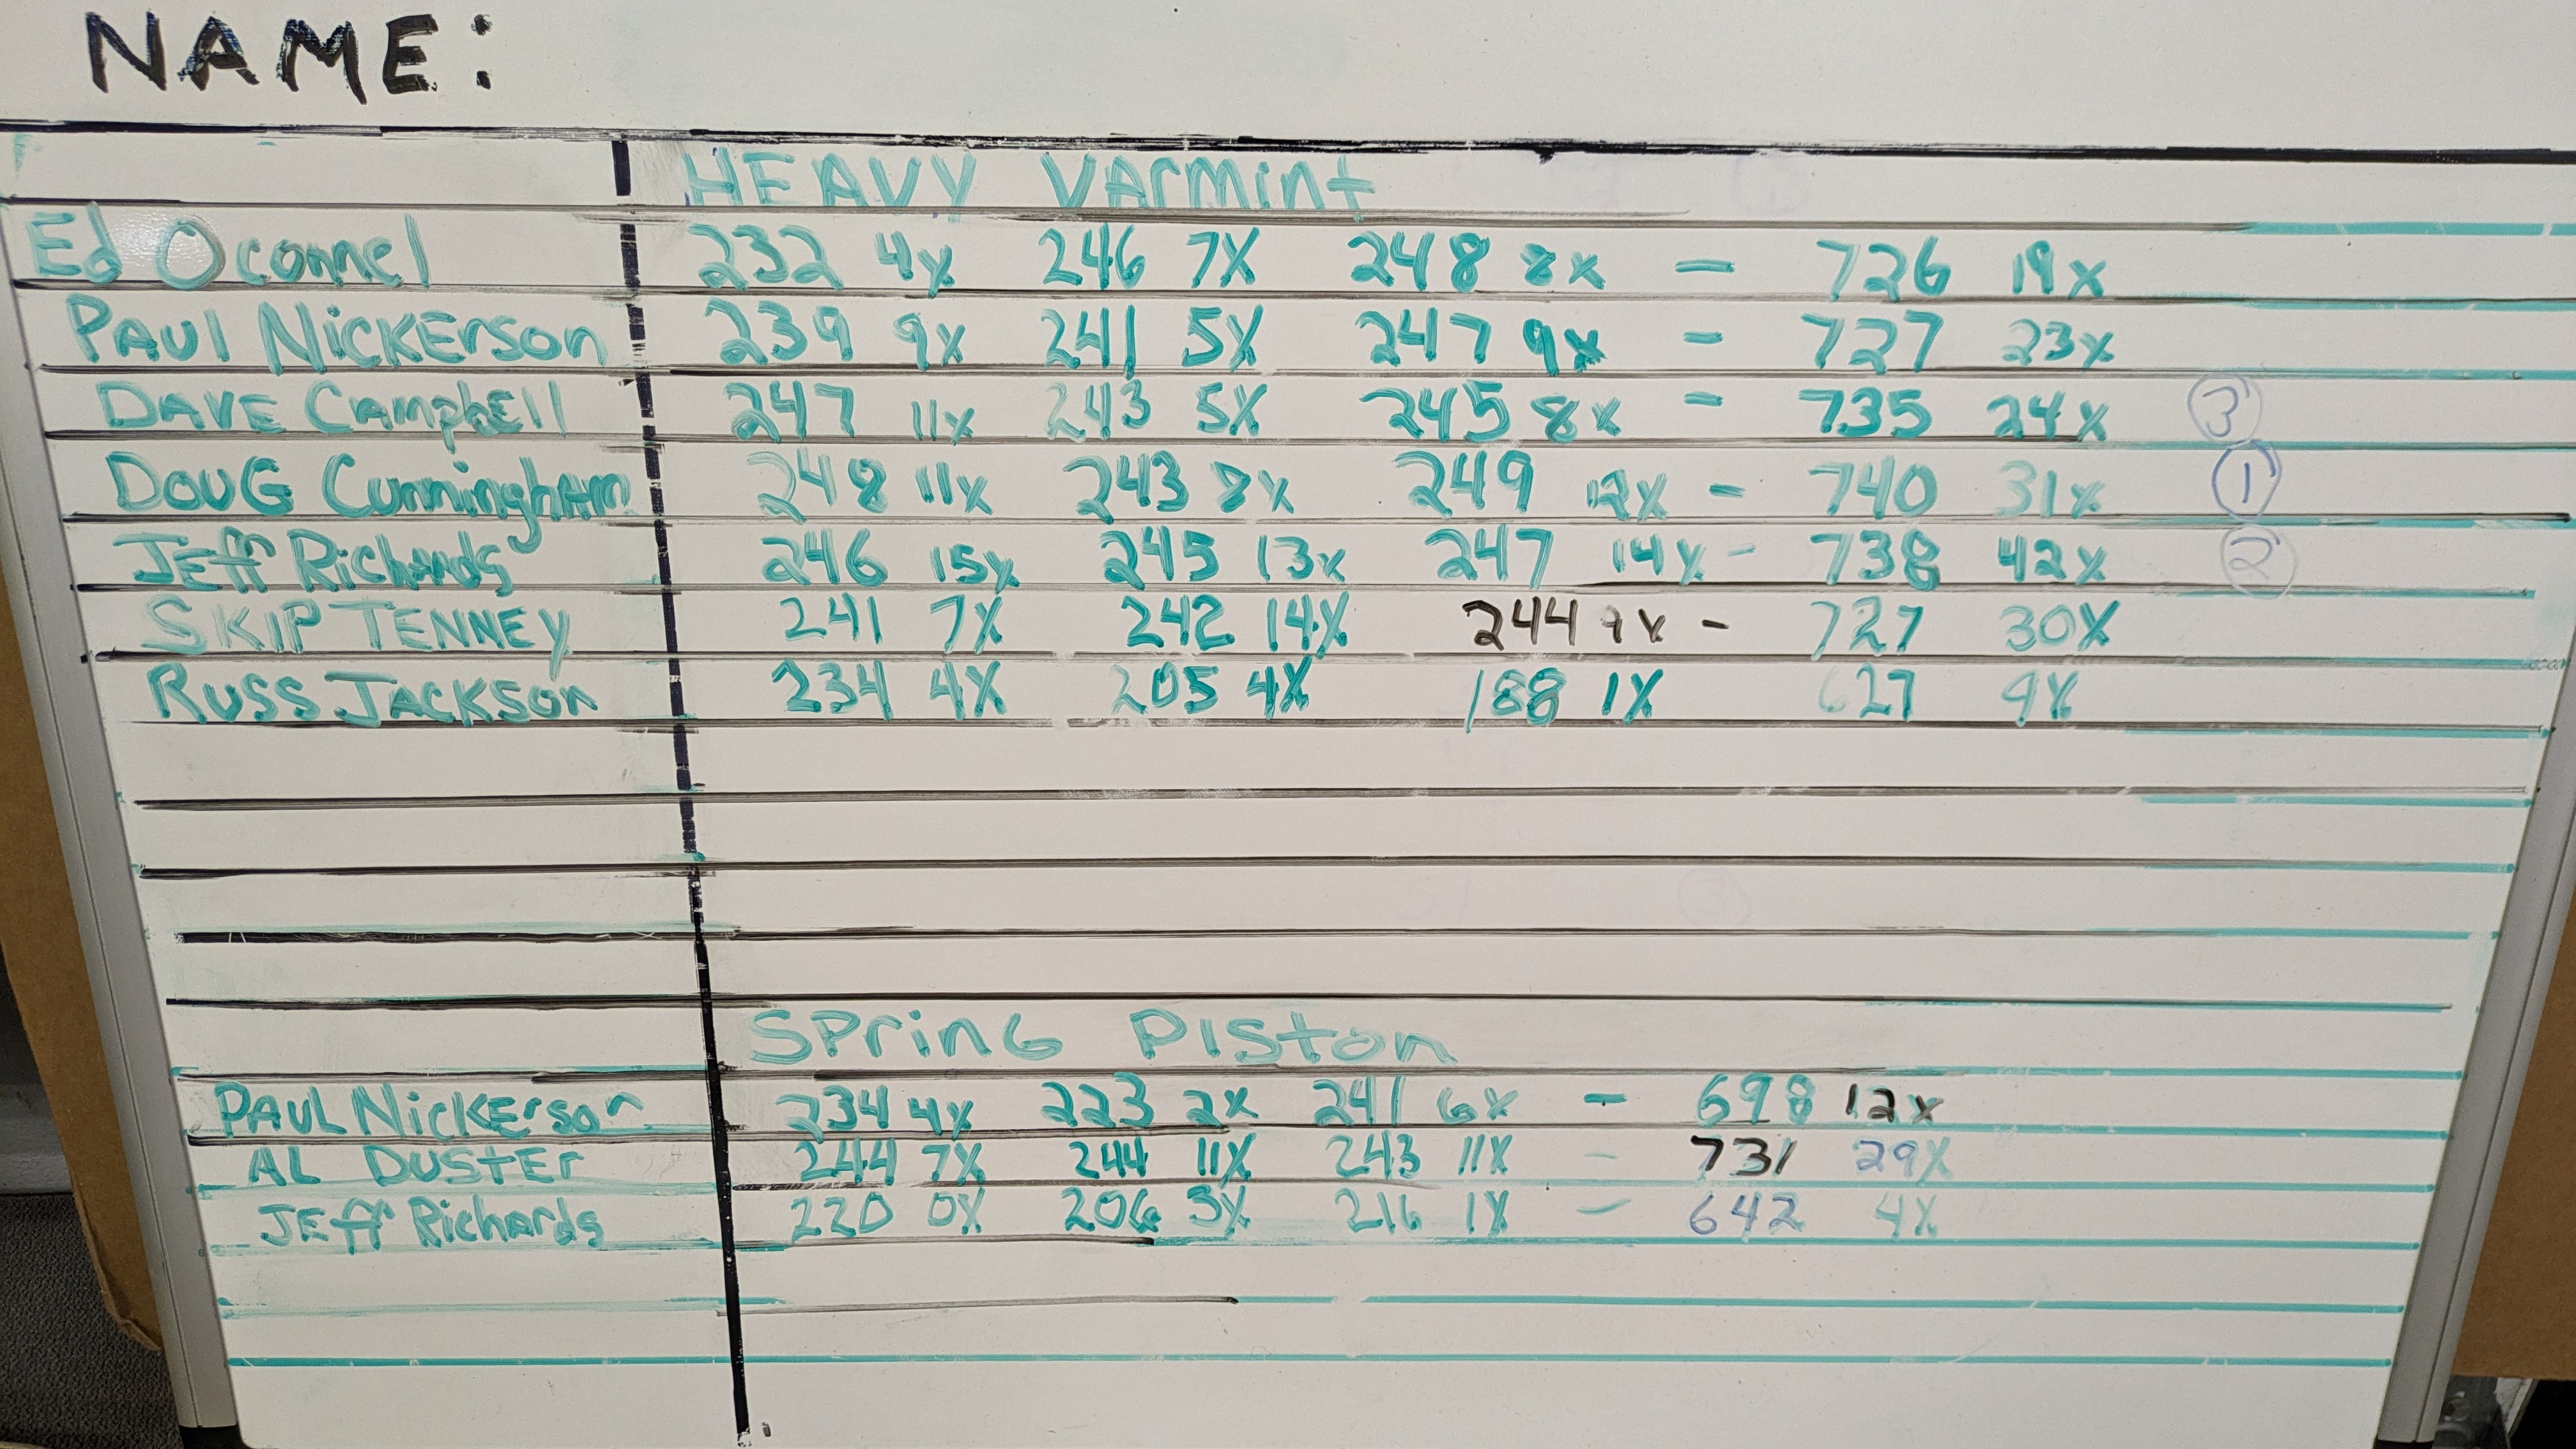 NAME:
HEAVY Varmint
Ed Oconnel 232 4x 246 7X 248 8x - 726 19x
PAUL NICKERSON 239 9x 241 5X 247 9x - 727 23x
DAVE CAMPBELL 247 11x 243 5X 245 8x - 735 24x 3
DOUG CunninghAm 248 11x 243 8x 249 12x - 740 31x 1
JEff RichArds 246 15x 245 13x 247 14x - 738 42x 2
SKIP TENNEY 241 7X 242 14X 244 9x - 727 30X
RUSS JACKSON 234 4X 205 4X 188 1X 627 9X
SPrinG PISton
PAUL NickErson 234 4x 223 2x 241 6x - 698 12x
AL DUSTEr 244 7X 244 11X 243 11X - 731 29X
JEff Richards 220 0X 206 3X 216 1X - 642 4X